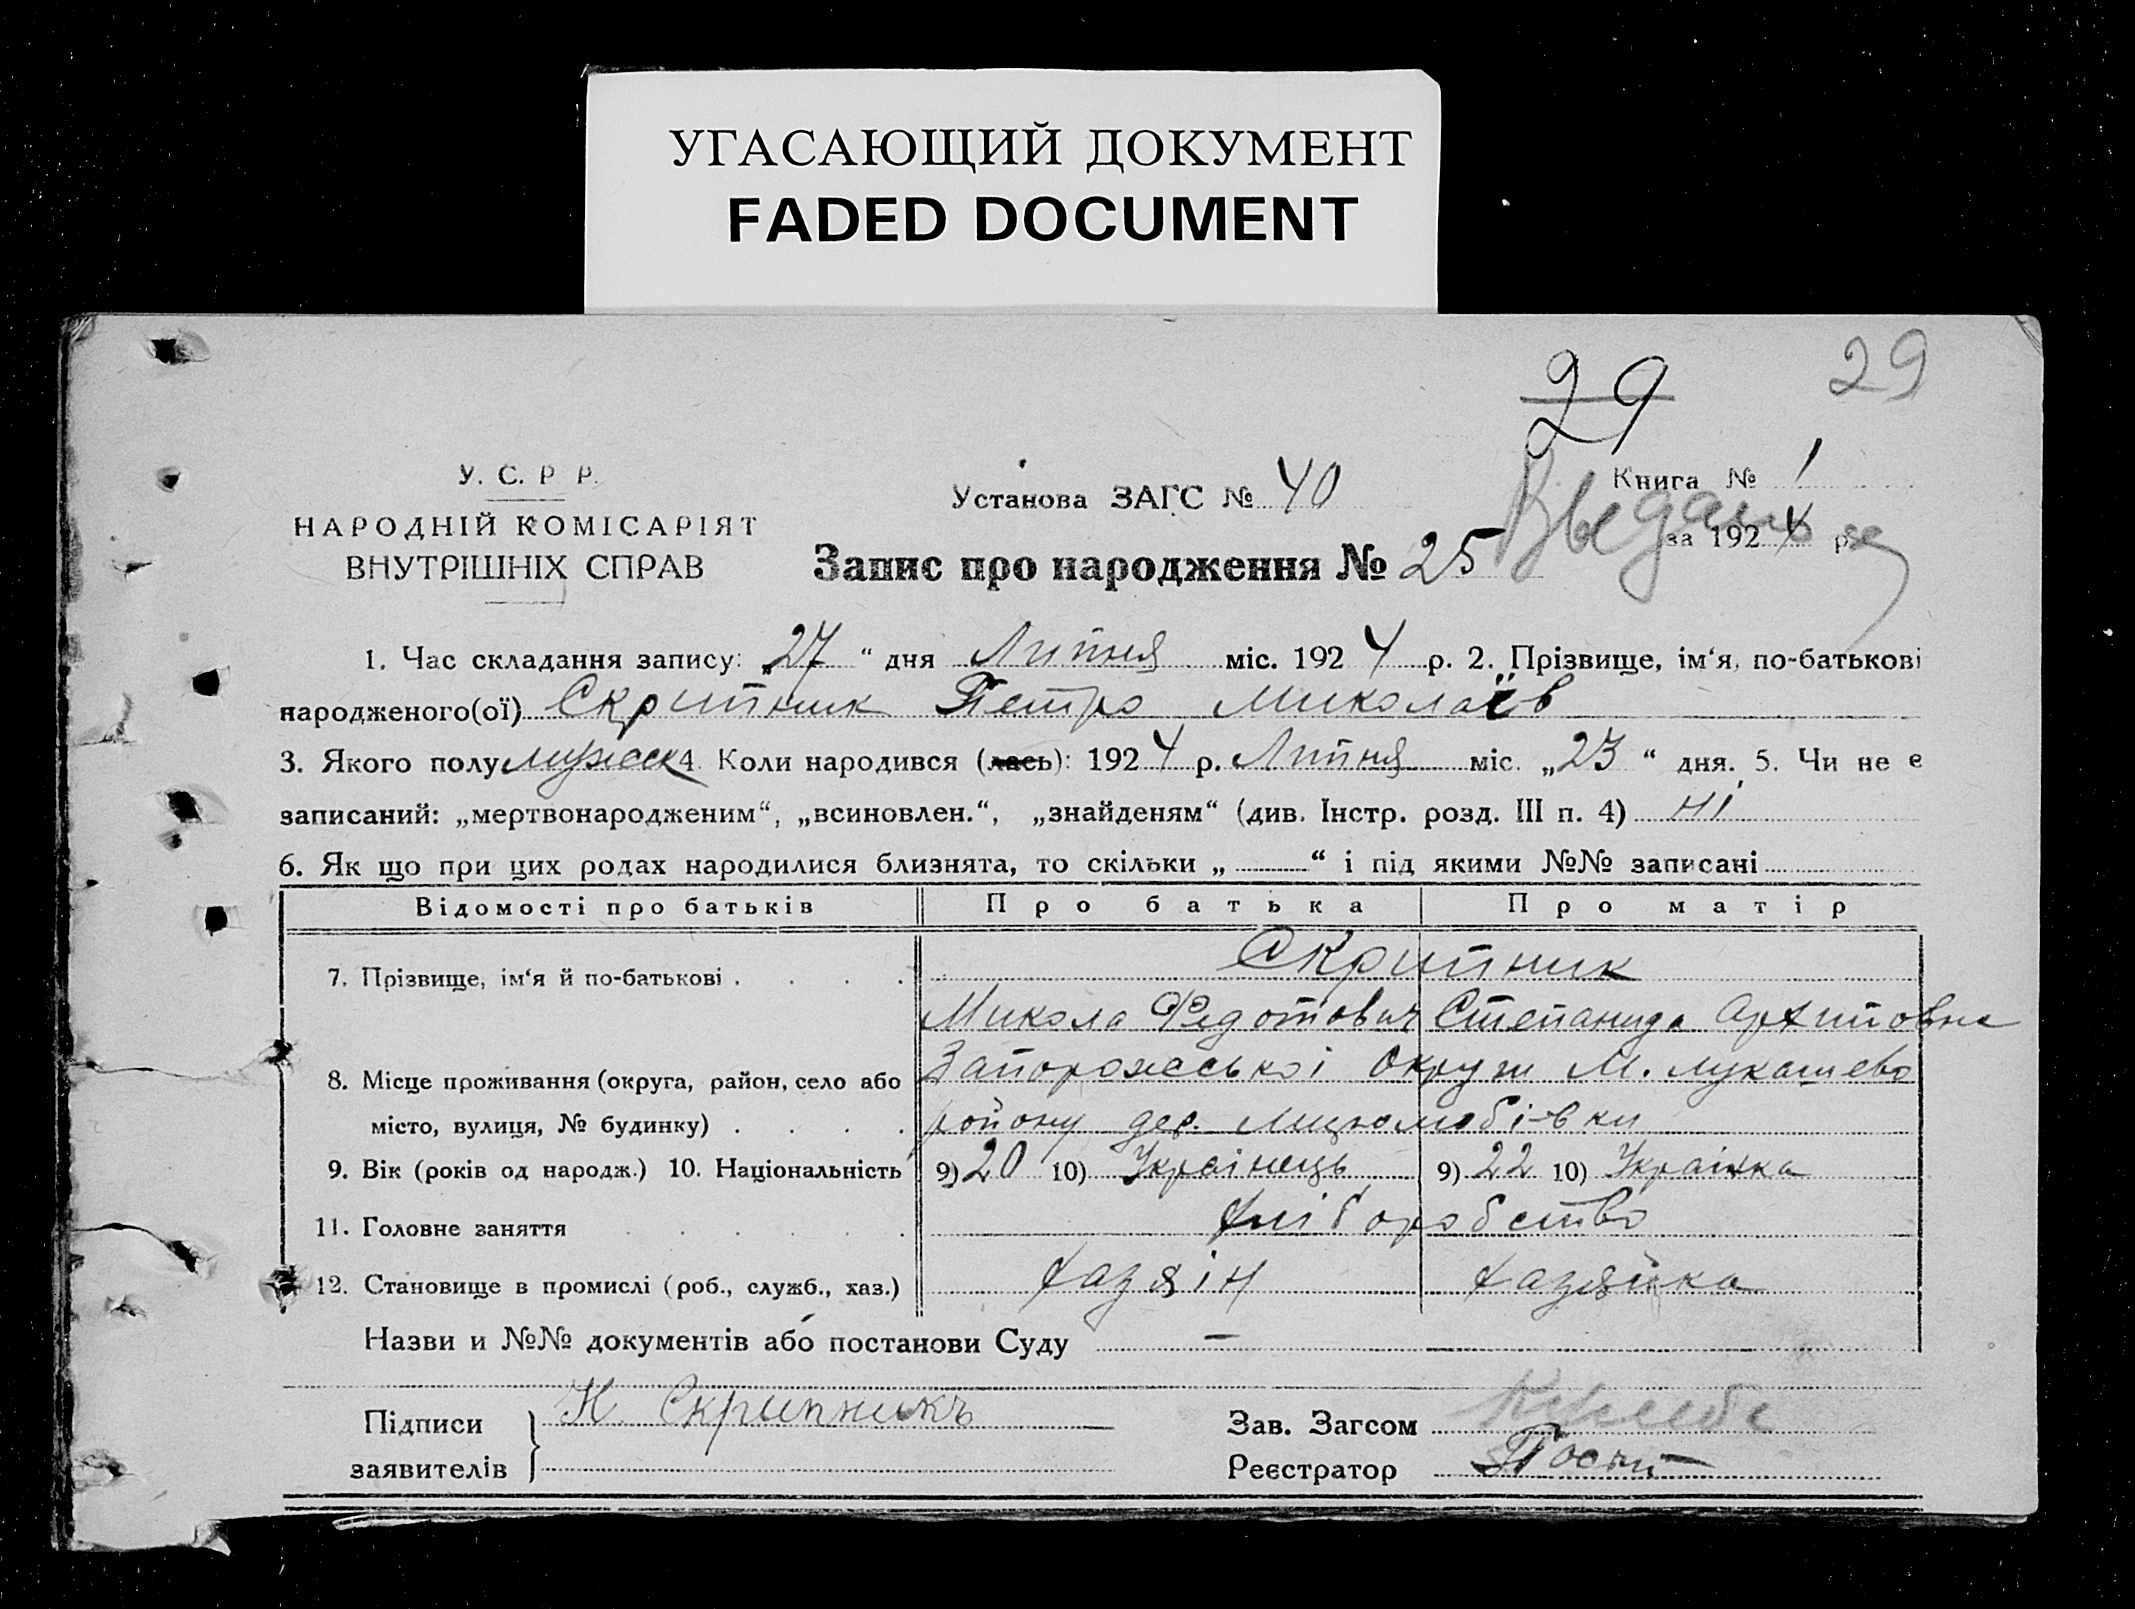 УГАСАЮЩИЙ ДОКУМЕНТ
FADED DOCUMENT
29 29
У. С. Р Р.
НАРОДНІЙ КОМІСАРІЯТ
ВНУТРІШНІХ СПРАВ
Установа ЗАГС № 40
Запис про народження № 25
Книга № 1
за 1924 р.
1. Час складання запису: „27 “ дня Липня міс. 1924 р. 2. Прізвище, ім‘я, по-батькові
народженого(ої) Скрипник Петро Миколаїв
3. Якого полу мужеск 4. Коли народився (лась): 1924 р. Липня міс. „23 “ дня. 5. Чи не є
записаний: „мертвонародженим“, „всиновлен.“, „знайденям“ (див. Інстр. розд. III п. 4) ні
6. Як що при цих родах народилися близнята, то скільки „ “ і під якими №№ записані
Відомості про батьків Про батька Про матір
7. Прізвище, ім‘я й по-батькові Скрипник
Микола Федотович Степанида Архиповна
8. Місце проживання (округа, район, село або Запорожської Округи М. Лукашево
місто, вулиця, № будинку) району дер.
9. Вік (років од народж.) 10. Національність 9) 20 10) Українець 9) 22 10) Українка
11. Головне заняття хліборобство
12. Становище в промислі (роб., служб., хаз.) хазяін хазяйка
Назви и №№ документів або постанови Суду —
Підписи Н Скрипникъ
заявителів
Зав. Загсом
Реєстратор